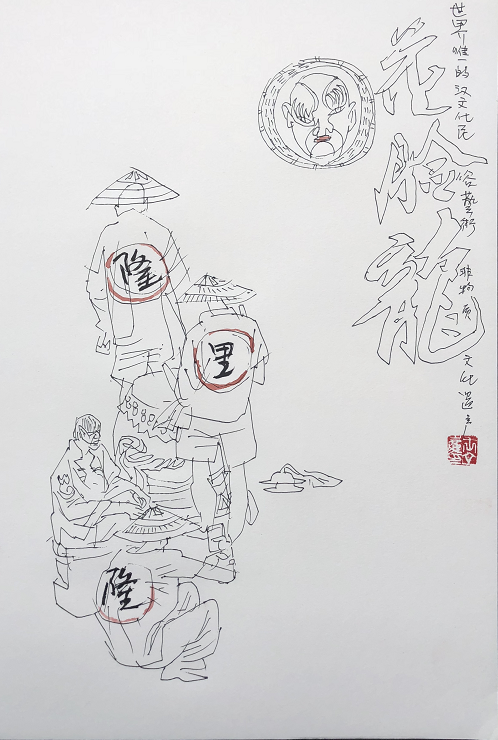 世界唯一的汉文化民俗藝術非物质文化遗产
花脸龍
隆
里
隆